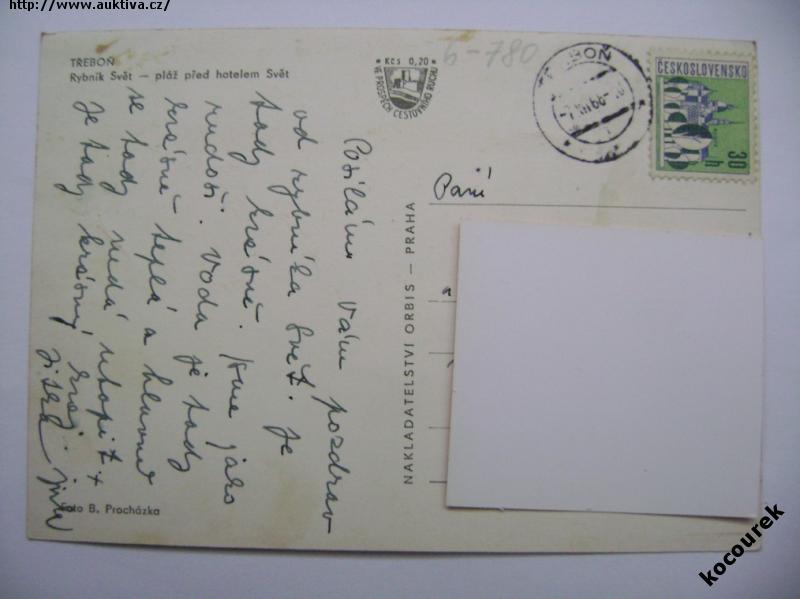 http://www.auktiva.cz/
TŘEBOŇ
Rybník Svět — pláž před hotelem Svět
Kčs 0,20
VE PROSPĚCH CESTOVNÍHO RUCHU
b-780
TŘEBOŇ
ČESKOSLOVENSKO
30 h
Paní
Posílám Vám pozdrav
od rybníka Svět. Je
tady krásně. Jsme jako
rudoši. Voda je tady
krásně teplá a hlavně
se tady nedá utopit
Je tady krásný kraj.
Jiska
NAKLADATELSTVÍ ORBIS — PRAHA
Foto B. Procházka
kocourek